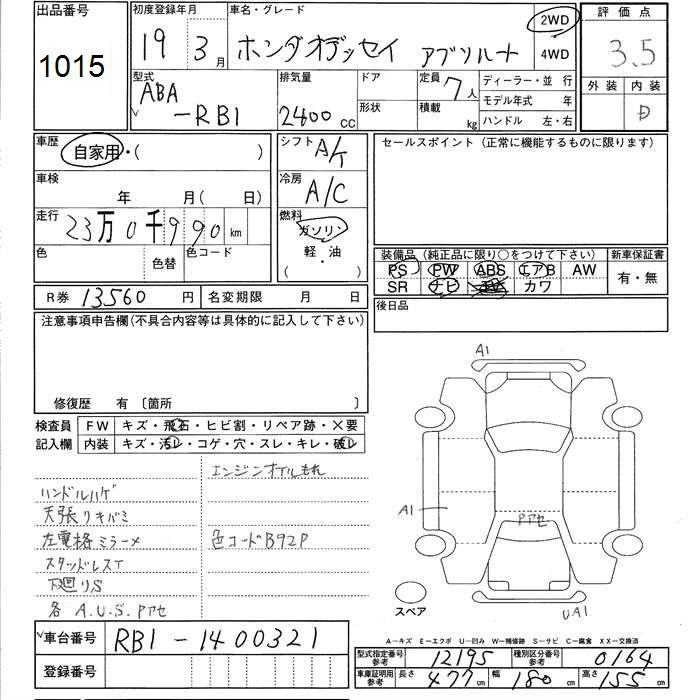 出品番号
1015
初度登録年月
19 3月
車名・グレード
ホンダオデッセイ アブソルート
2WD
4WD
評価点
3.5
外装 内装
D
型式
ABA
-RB1
排気量
2400 cc
ドア
形状
定員 7人
積載 kg
ディーラー・並行
モデル年式 年
ハンドル 左・右
車歴
自家用・( )
シフト A/T
セールスポイント(正常に機能するものに限ります)
車検
年 月( 日)
冷房 A/C
走行 23万0千990km
燃料
ガソリン
軽・油
( )
色
色替
色コード
装備品(純正品に限り○をつけて下さい)
新車保証書
PS PW ABS エアB AW
SR ナビ カワ
有・無
R券 13560円
名変期限 月 日
後日品
注意事項申告欄(不具合内容等は具体的に記入して下さい)
修復歴 有 〔箇所 〕
検査員
記入欄
FW キズ・飛石・ヒビ割・リペア跡・×要
内装 キズ・汚レ・コゲ・穴・スレ・キレ・破レ
エンジンオイルもれ
ハンドルハゲ
天張リキバミ
左電格ミラーメ
色コードB92P
スタッドレスT
下廻リS
各 A.U.S.Pアセ
A1
A1
Pアセ
スペア
UA1
車台番号 RB1-1400321
登録番号
A-キズ E-エクボ U-凹み W-補修跡 S-サビ C-腐食 XX-交換済
型式指定番号
参考
12195
種別区分番号
参考
0164
車庫証明用
参考
長さ 477cm 幅 180cm 高さ 155cm